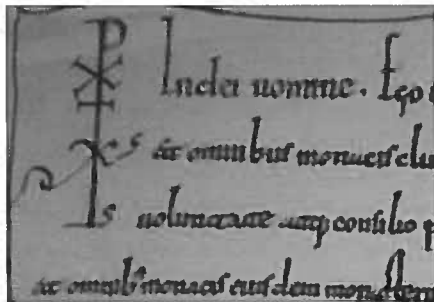 In dei nomine. Ego
& omnibus monacis clu
voluntate atq; consilio p
& omnib; monacis eiusdem monasterii